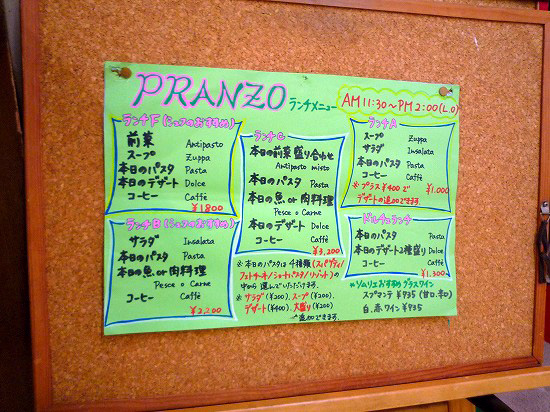 PRANZO ランチメニュー AM 11:30～PM 2:00(L.O)
ランチF(シェフのおすすめ)
前菜 Antipasto
スープ Zuppa
本日のパスタ Pasta
本日のデザート Dolce
コーヒー Caffè
¥1800
ランチB(シェフのおすすめ)
サラダ Insalata
本日のパスタ Pasta
本日の魚 or 肉料理
Pesce o Carne
コーヒー Caffè
¥2,200
ランチC
本日の前菜 盛り合わせ
Antipasto misto
本日のパスタ Pasta
本日の魚 or 肉料理
Pesce o Carne
本日のデザート Dolce
コーヒー Caffè
¥3,200
※本日のパスタは4種類(スパゲティ/
フェトチーネ/ショートパスタ/リゾット)の
中から選んでいただけます.
※サラダ(¥200)、スープ(¥200)、
デザート(¥400)、大盛り(¥200)
追加できます.
ランチA
スープ Zuppa
サラダ Insalata
本日のパスタ Pasta
コーヒー Caffè
※プラス¥400で ¥1,000
デザートの追加できます.
ドルチェランチ
本日のパスタ Pasta
本日のデザート2種盛り Dolce
コーヒー Caffè
¥1,300
※ソムリエおすすめグラスワイン
スプマンテ ¥735(甘口.辛口)
白.赤ワイン ¥735